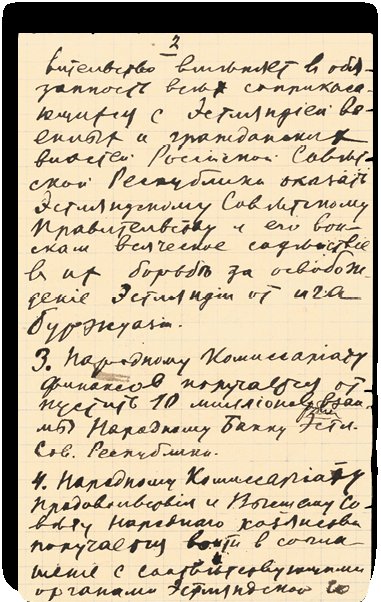 2
вительство вменяет в обя-
занность всѣх соприкаса-
ющихся с Эстляндіей во-
енных и гражданских
властей Россійской Совѣт-
ской Республики оказать
Эстляндскому Совѣтскому
Правительству и его вой-
скам всяческое содѣйствіе
в их борьбѣ за освобож-
деніе Эстляндіи от ига
буржуазіи.
3. Народному Комиссаріату
финансов поручается от-
пустить 10 милліонов взаи-
мы Народному Банку Эстл.
Сов. Республики.
4. Народному Комиссаріату
Продовольствія и Высшему Со-
вѣту Народнаго хозяйства
поручается войти в согла-
шеніе с соотвѣтствующими
органами Эстляндской